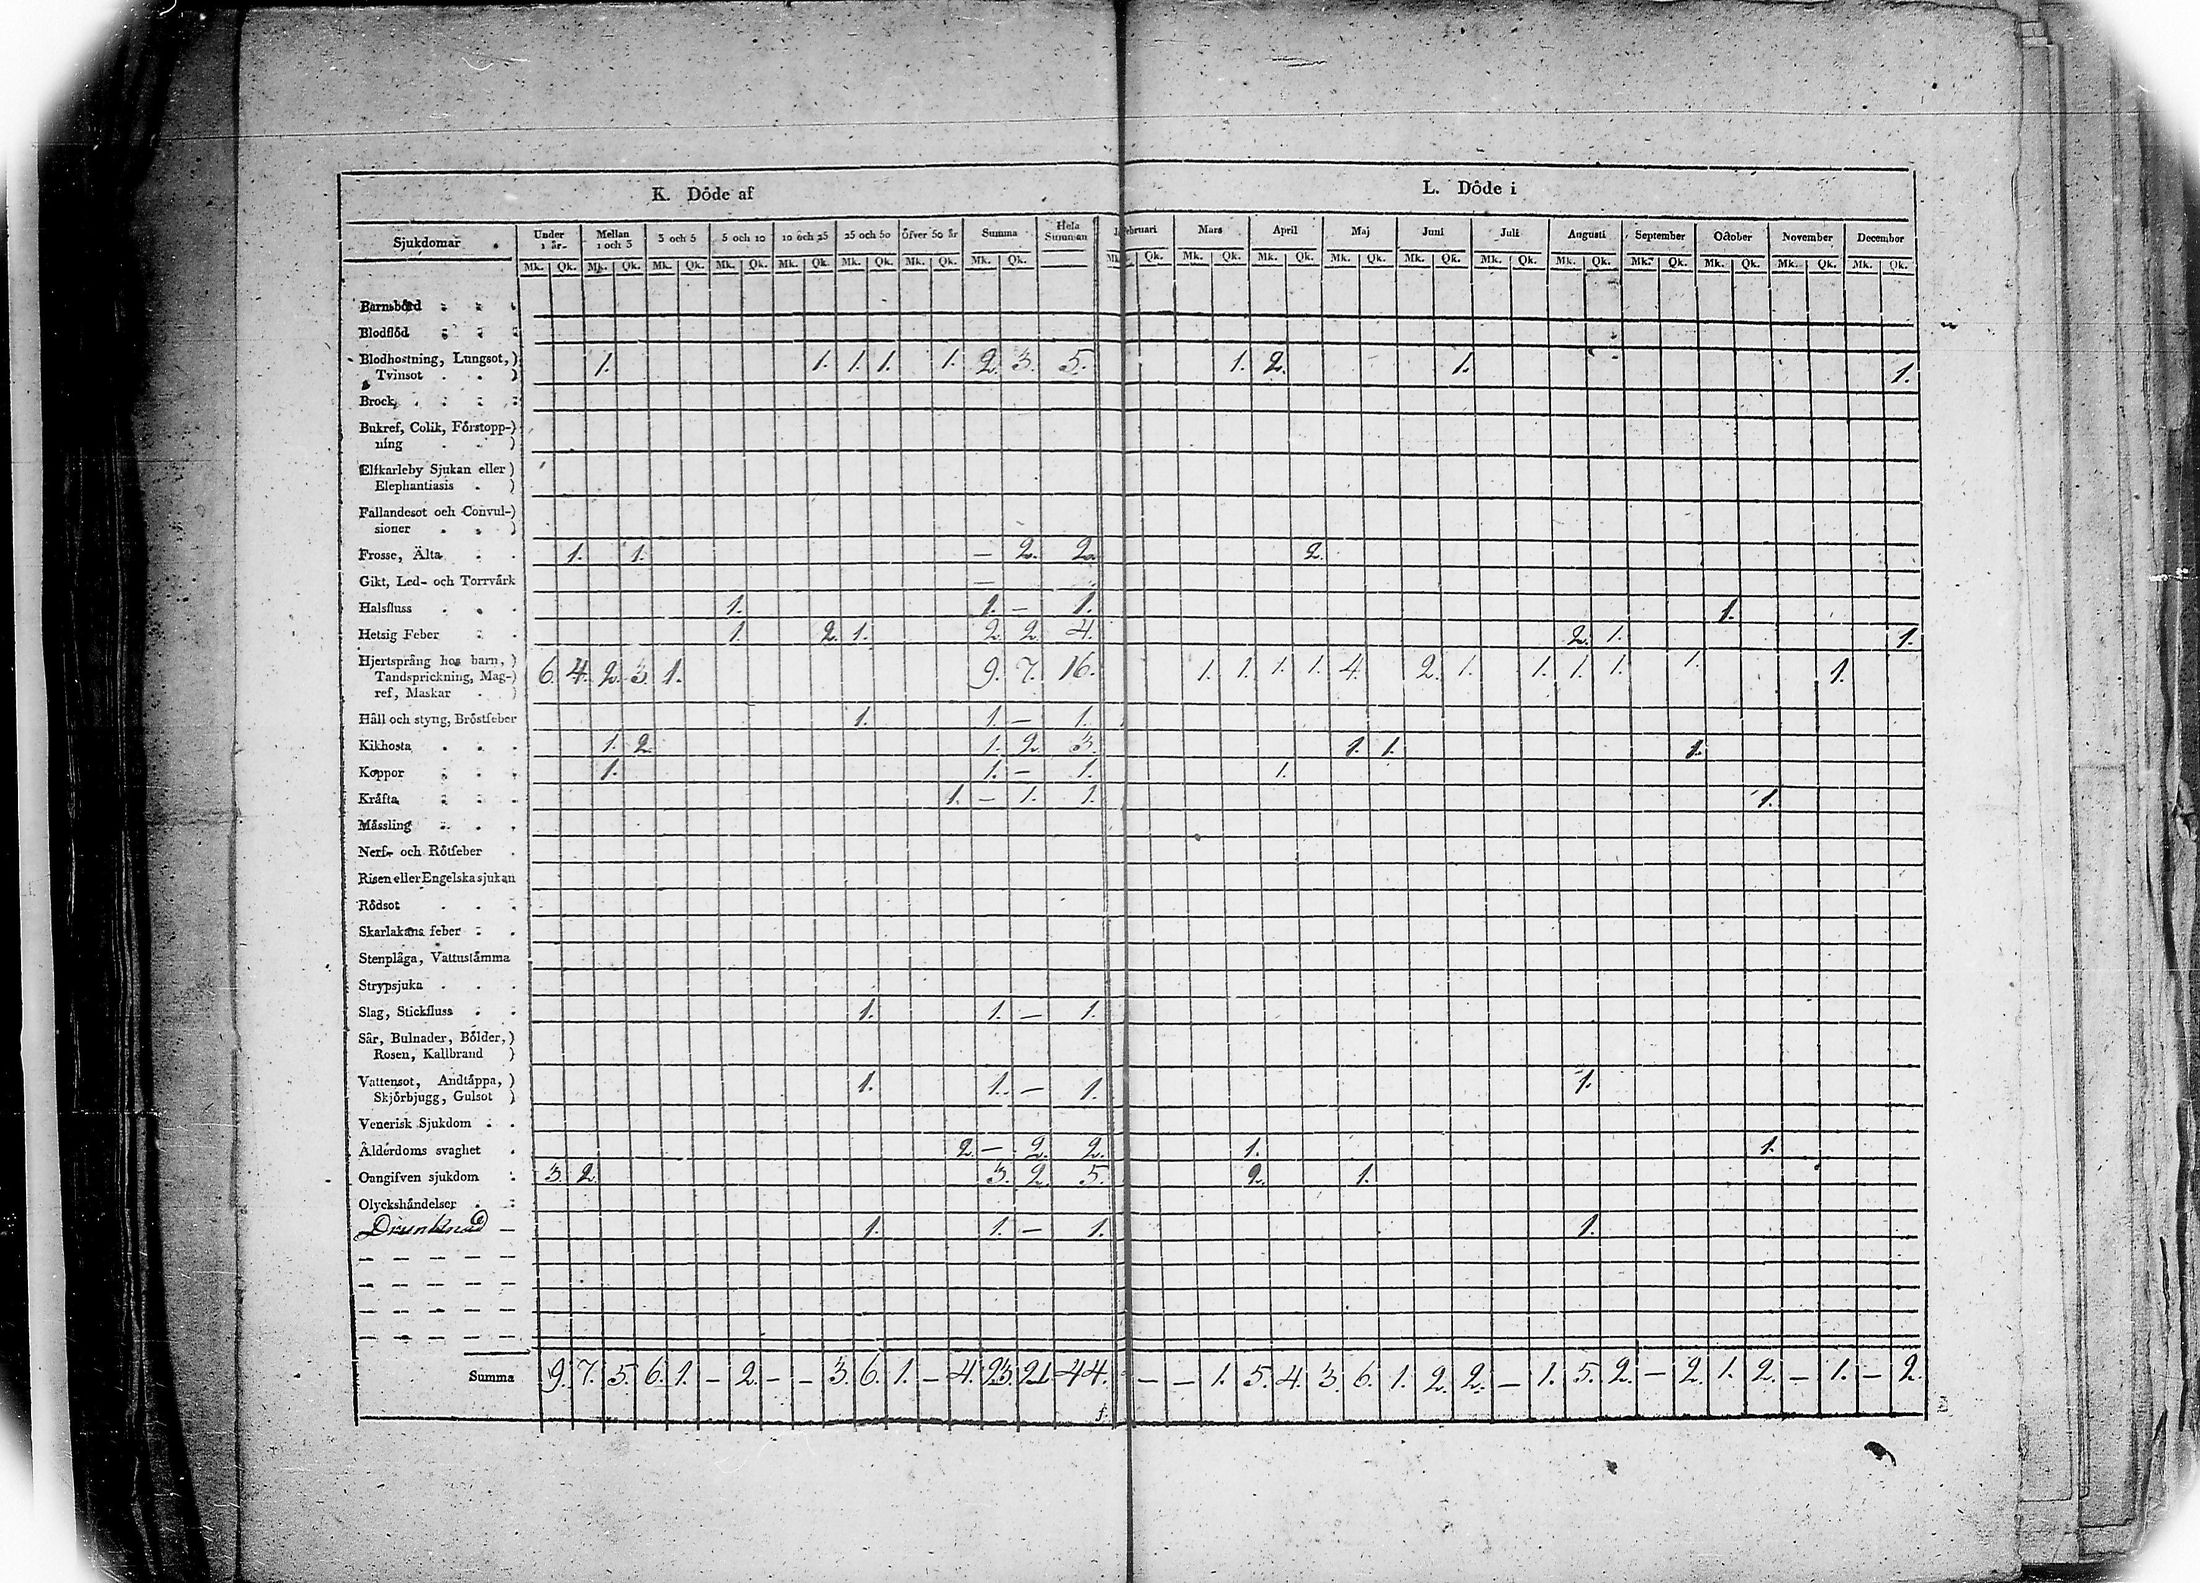 K. Döde af L. Döde i
Sjukdomar Under 1 år Mellan 1 och 3 3 och 5 5 och 10 10 och 25 25 och 50 Öfver 50 år Summa Hela Summan Februari Mars April Maj Juni Juli Augusti September October November December
Mk. Qk. Mk. Qk. Mk. Qk. Mk. Qk. Mk. Qk. Mk. Qk. Mk. Qk. Mk. Qk. Mk. Qk. Mk. Qk. Mk. Qk. Mk. Qk. Mk. Qk. Mk. Qk. Mk. Qk. Mk. Qk. Mk. Qk. Mk. Qk. Mk. Qk.
Barnsbörd
Blodflöd
Blodhostning, Lungsot, 1. 1. 1. 1. 1. 2. 3. 5. 1. 2. 1. 1.
Tvinsot
Brock
Bukref, Colik, Förstopp-
ning
Elfkarleby Sjukan eller
Elephantiasis
Fallandesot och Convul-
sioner
Frosse, Älta 1. 1. — 2. 2. 2.
Gikt, Led- och Torrvärk —
Halsfluss 1. 1. — 1. 1.
Hetsig Feber 1. 2. 1. 2. 2. 4. 2. 1. 1.
Hjertsprång hos barn,
Tandsprickning, Mag- 6. 4. 2. 3. 1. 9. 7. 16. 1. 1. 1. 1. 4. 2. 1. 1. 1. 1. 1. 1.
ref, Maskar
Håll och styng, Bröstfeber 1. 1. — 1.
Kikhosta 1. 2. 1. 2. 3. 1. 1. 1.
Koppor 1. 1. — 1. 1.
Kräfta 1. — 1. 1. 1.
Mässling
Nerf- och Rötfeber
Risen eller Engelska sjukan
Rödsot
Skarlakans feber
Stenplåga, Vattustämma
Strypsjuka
Slag, Stickfluss 1. 1. — 1.
Sår, Bulnader, Bölder,
Rosen, Kallbrand
Vattensot, Andtäppa, 1. 1. — 1. 1.
Skjörbjugg, Gulsot
Venerisk Sjukdom
Ålderdoms svaghet 2. — 2. 2. 1. 1.
Oangifven sjukdom 3. 2. 3. 2. 5. 2. 1.
Olyckshändelser
Drunknad — 1. 1. — 1. 1.
— — — — —
— — — — —
— — — — —
— — — — —
Summa 9. 7. 5. 6. 1. — 2. — — 3. 6. 1. — 4. 23. 21. 44. — — 1. 5. 4. 3. 6. 1. 2. 2. — 1. 5. 2. — 2. 1. 2. — 1. — 2.